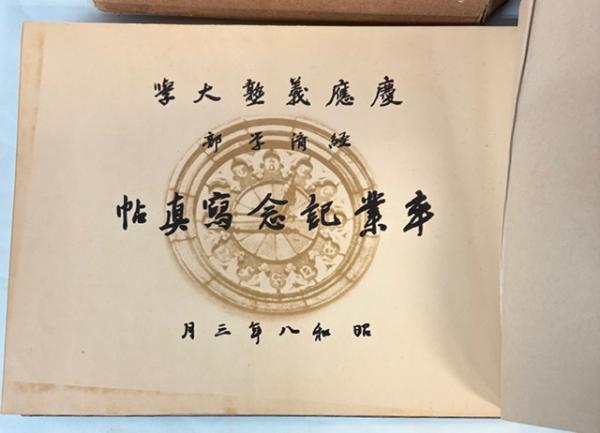 慶應義塾大學
経済学部
卒業記念寫真帖
昭和八年三月